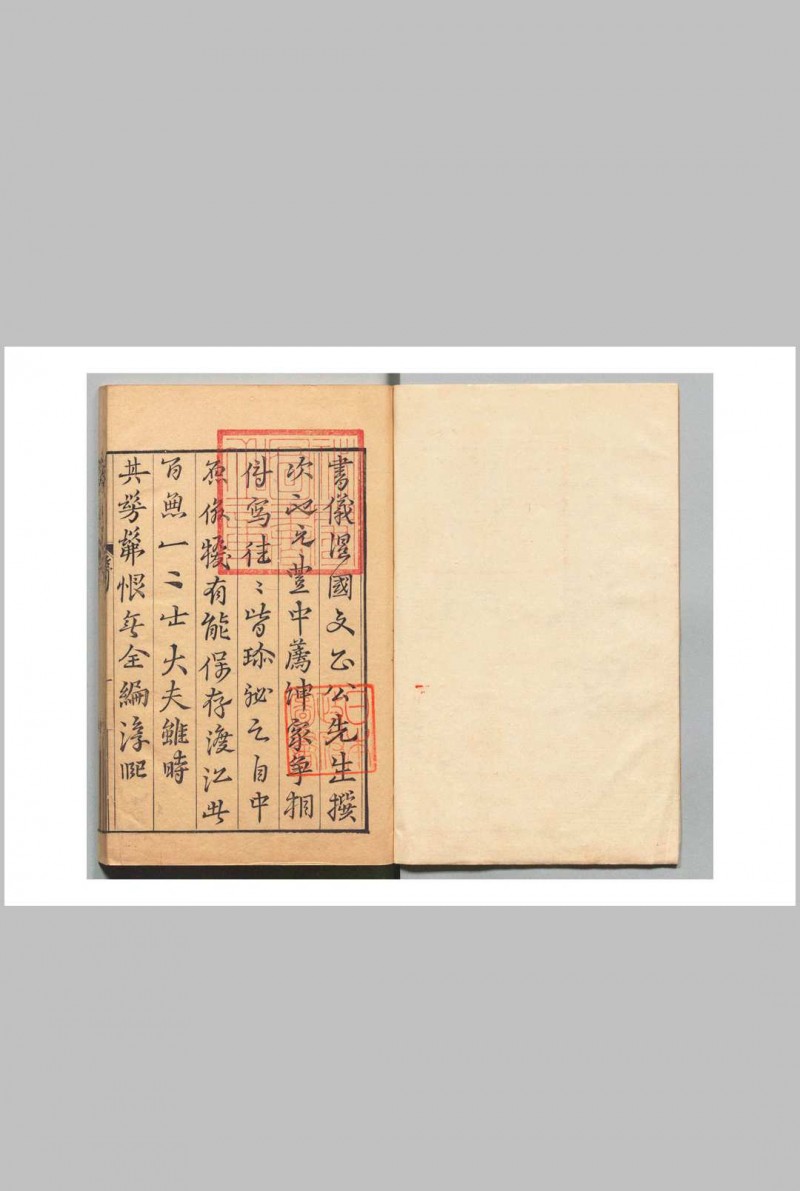 書儀溫國文正公先生撰
次也元豐中薦紳家爭相
傳寫往〻皆珍祕之自中
原俶擾有能保存渡江此
百無一二士大夫雖時
共髣髴恨無全編淳熙